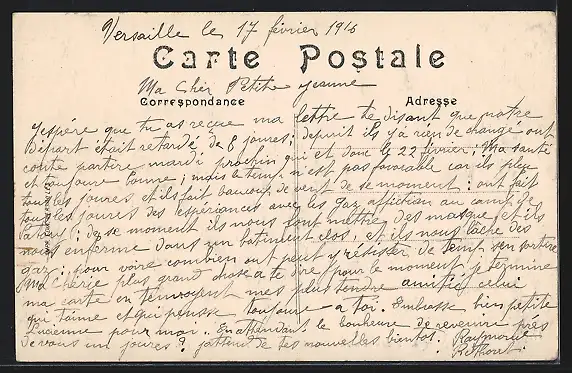 Versaille le 17 février 1916
Carte Postale
Ma Chér Petite Jeanne
Correspondance Adresse
J'espère que tu as reçue ma lettre te disant que notre
départ était retardé de 8 joures; depuit ils y a rien de changé ont
conte partire mardi prochin qui et donc le 22 février; Ma santé
et toujoure bonne; mais le temp n'est pas favorable car ils pleu
tous les joures et ils fait baucoup de vent de se moment: ont fait
tous les joures des expériances avec les gaz au camp de
: de se moment ils nous font mettre des masque et ils
nous enferme dans un batiment clos, et ils nous lache des
gaz: pour voire combien ont peut y résister de temt sen sortire
Ma chérie plus grand chose a te dire pour le moment je termine
ma carte en t'envoyent mes plus tendre amitié celui
qui t'aime et qui pensse toujoure a toi. Embrasse bien petite
Lucienne pour moi. En attendant le bonheure de revenire près
de vous un joures? j'attend de tes nouvelles bientot. Raymond